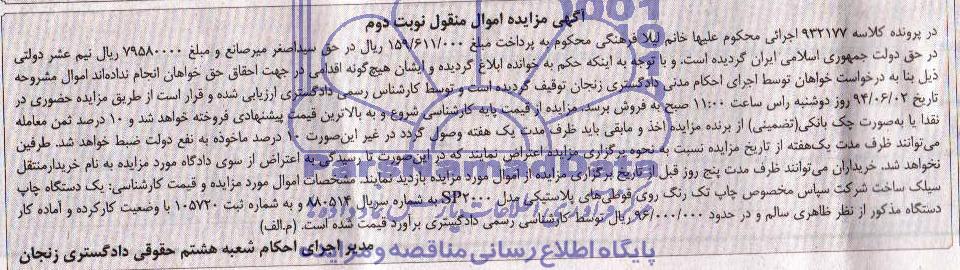 آگهی مزایده اموال منقول نوبت دوم
در پرونده کلاسه ۹۳۲۱۷۷ اجرائی محکوم علیها خانم لیلا فرهنگی محکوم به پرداخت مبلغ ۱۵۹/۶۱۱/۰۰۰ ریال در حق سیداصغر میرصانع و مبلغ ۷۹۵۸۰۰۰۰ ریال نیم عشر دولتی
در حق دولت جمهوری اسلامی ایران گردیده است، و با توجه به اینکه حکم به خوانده ابلاغ گردیده و ایشان هیچ‌گونه اقدامی در جهت احقاق حق خواهان انجام نداده‌اند اموال مشروحه
ذیل بنا به درخواست خواهان توسط اجرای احکام مدنی دادگستری زنجان توقیف گردیده است و توسط کارشناس رسمی دادگستری ارزیابی شده و قرار است از طریق مزایده حضوری در
تاریخ ۹۴/۰۶/۰۲ روز دوشنبه راس ساعت ۱۱:۰۰ صبح به فروش برسد. مزایده از قیمت پایه کارشناسی شروع و به بالاترین قیمت پیشنهادی فروخته خواهد شد و ۱۰ درصد ثمن معامله
نقدا یا به‌صورت چک بانکی(تضمینی) از برنده مزایده اخذ و مابقی باید ظرف مدت یک هفته وصول گردد در غیر این‌صورت ۱۰ درصد ماخوذه به نفع دولت ضبط خواهد شد. طرفین
می‌توانند ظرف مدت یک‌هفته از تاریخ مزایده نسبت به نحوه برگزاری مزایده اعتراض نمایند که در این‌صورت تا رسیدگی به اعتراض از سوی دادگاه مورد مزایده به نام خریدارمنتقل
نخواهد شد. خریداران می‌توانند ظرف مدت پنج روز قبل از تاریخ برگزاری مزایده از اموال مورد مزایده بازدید نمایند. مشخصات اموال مورد مزایده و قیمت کارشناسی: یک دستگاه چاپ
سیلک ساخت شرکت سپاس مخصوص چاپ تک رنگ روی قوطی‌های پلاستیکی مدل SP۲۰۰۰ به شماره سریال ۸۸۰۵۱۴ و به شماره ثبت ۱۰۵۷۲۰ با وضعیت کارکرده و آماده کار
دستگاه مذکور از نظر ظاهری سالم و در حدود ۹۶/۰۰۰/۰۰۰ ریال توسط کارشناسی رسمی دادگستری برآورد قیمت شده است. (م.الف)
مدیر اجرای احکام شعبه هشتم حقوقی دادگستری زنجان
پایگاه اطلاع رسانی مناقصه و مزایده